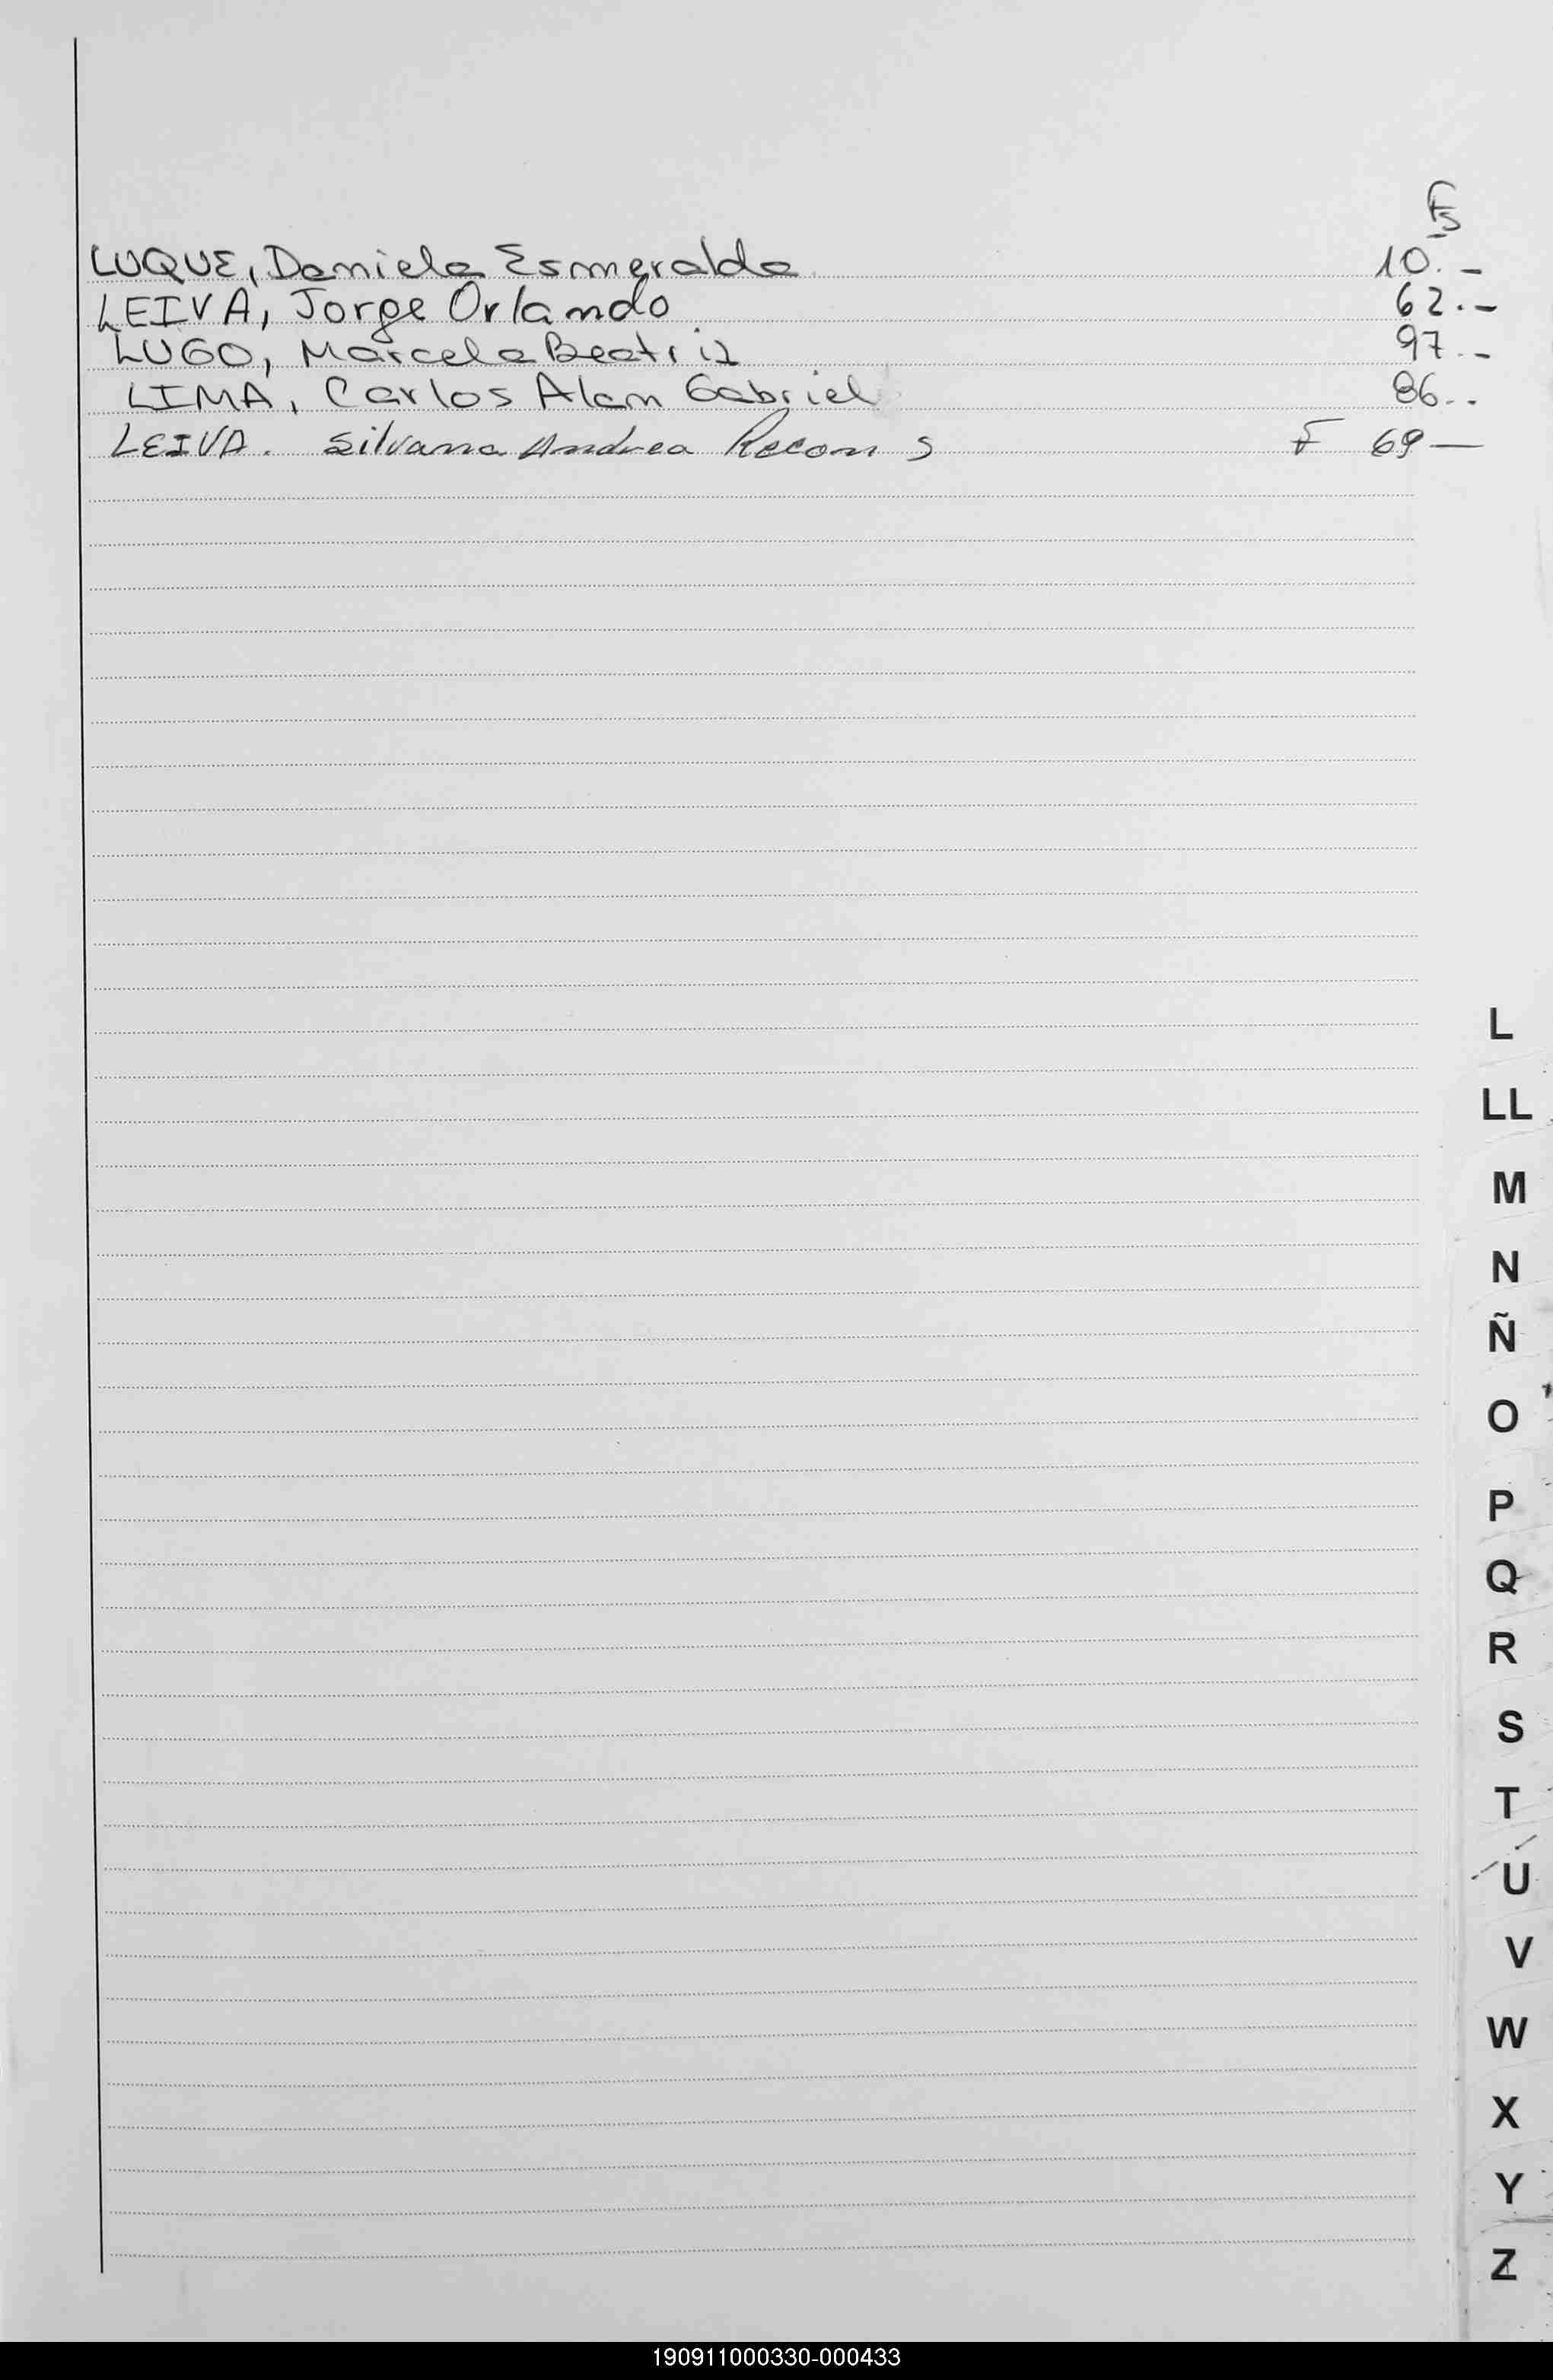 Fs
LUQUE, Daniela Esmeralda 10.-
LEIVA, Jorge Orlando 62.-
LUGO, Marcela Beatriz 97.-
LIMA, Carlos Alan Gabriel 86..
LEIVA. Silvana Andrea Recon S F 69—
L
LL
M
N
Ñ
O
P
Q
R
S
T
U
V
W
X
Y
Z
190911000330-000433